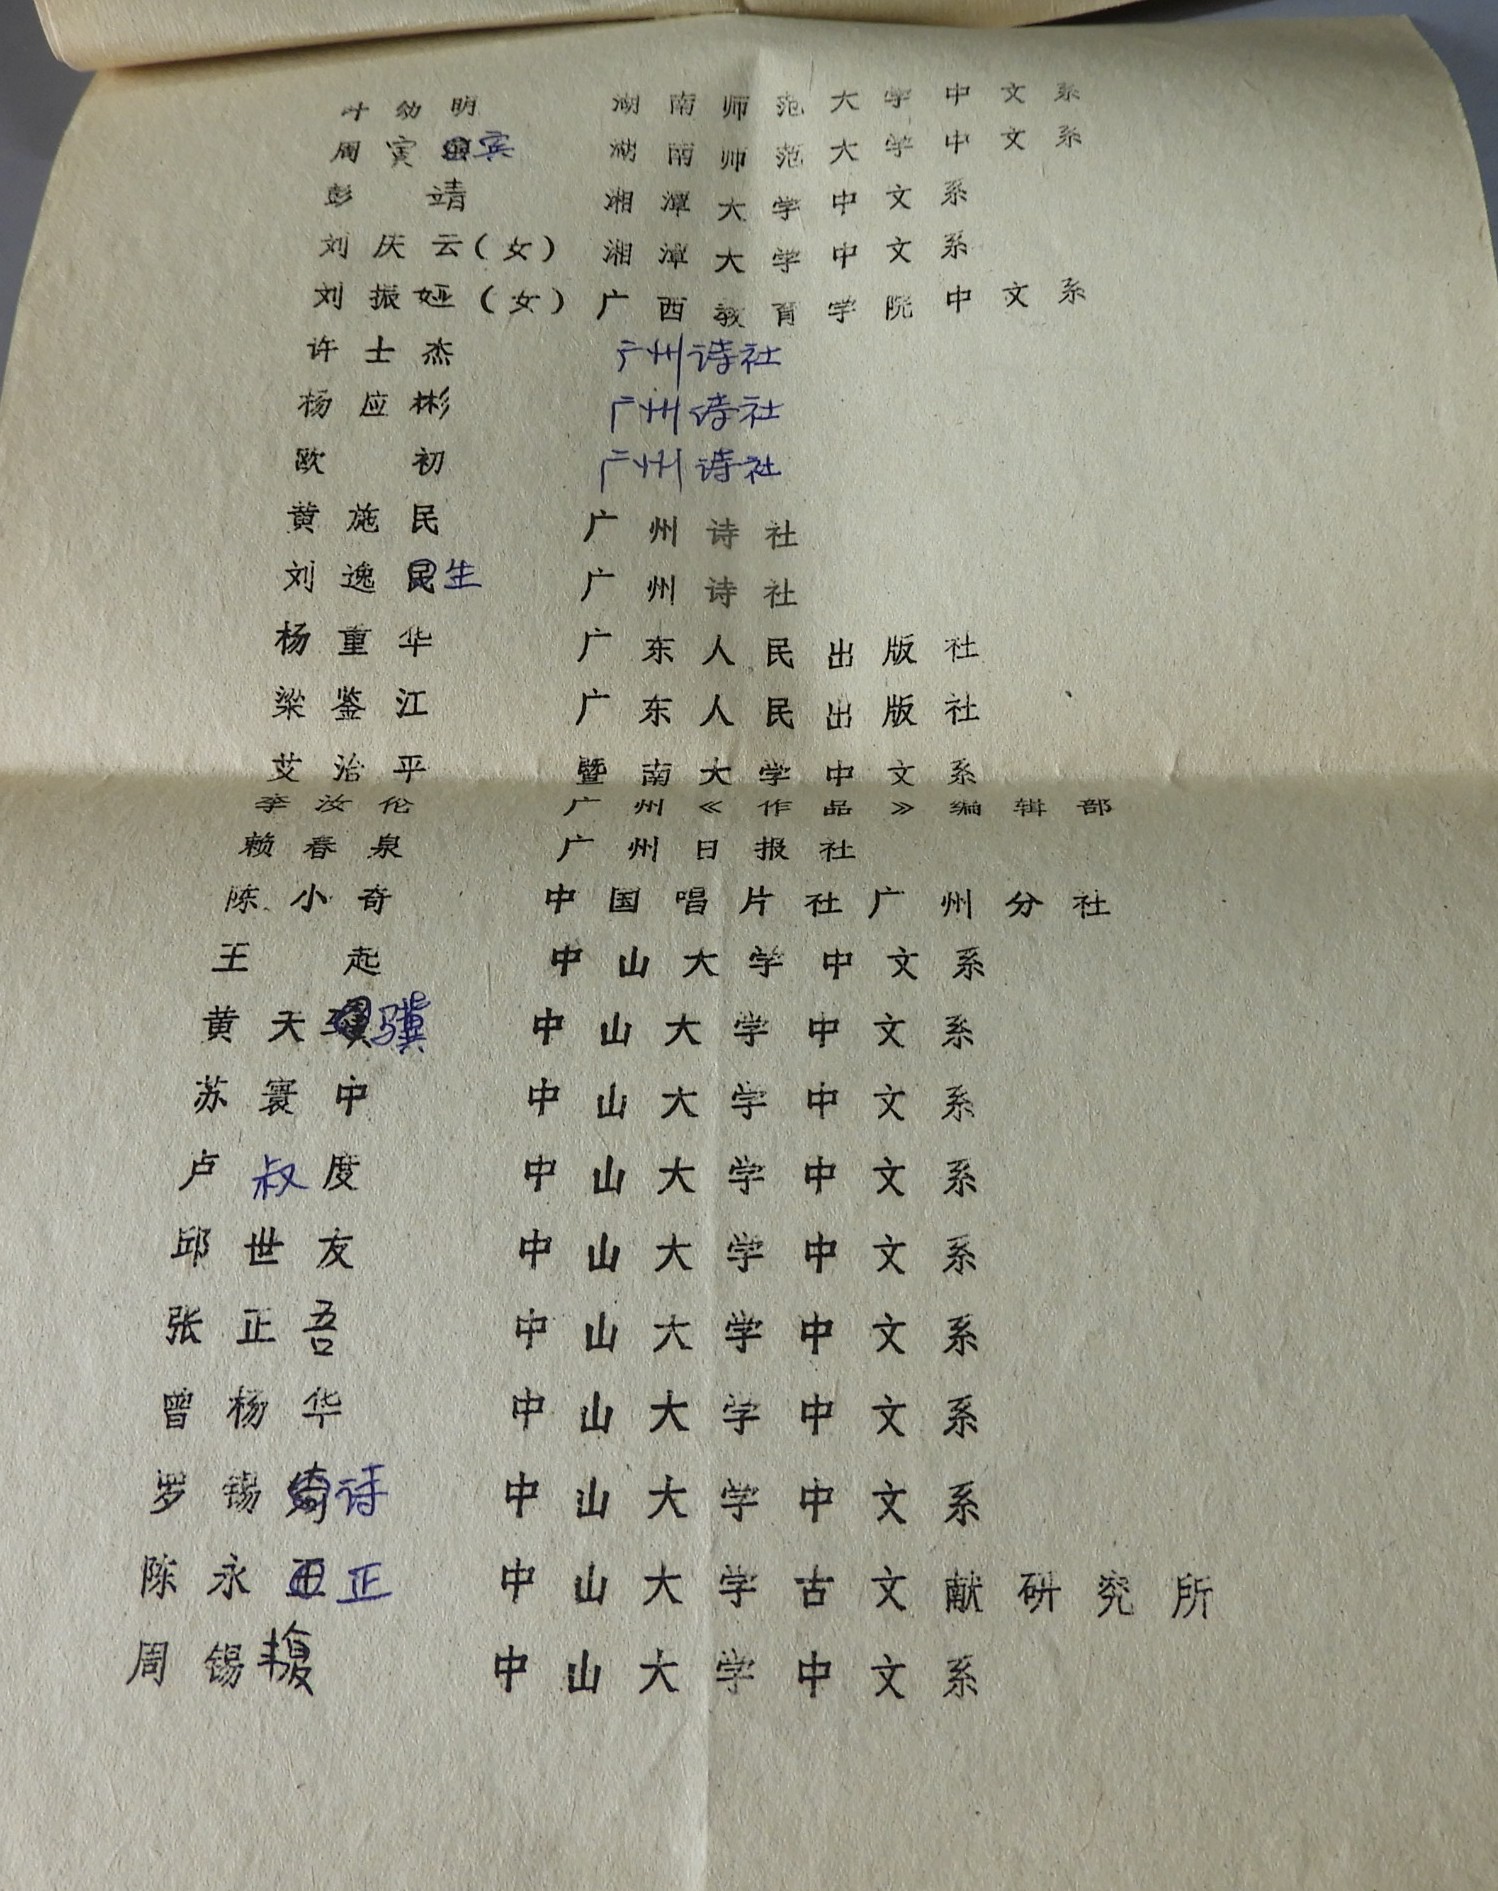 叶幼明 湖南师范大学中文系
周寅宾 湖南师范大学中文系
彭靖 湘潭大学中文系
刘庆云(女) 湘潭大学中文系
刘振娅(女) 广西教育学院中文系
许士杰 广州诗社
杨应彬 广州诗社
欧初 广州诗社
黄施民 广州诗社
刘逸民生 广州诗社
杨重华 广东人民出版社
梁鉴江 广东人民出版社
艾治平 暨南大学中文系
李汝伦 广州《作品》编辑部
赖春泉 广州日报社
陈小奇 中国唱片社广州分社
王起 中山大学中文系
黄天骥 中山大学中文系
苏寰中 中山大学中文系
卢叔度 中山大学中文系
邱世友 中山大学中文系
张正吾 中山大学中文系
曾杨华 中山大学中文系
罗锡诗 中山大学中文系
陈永正 中山大学古文献研究所
周锡䪖 中山大学中文系